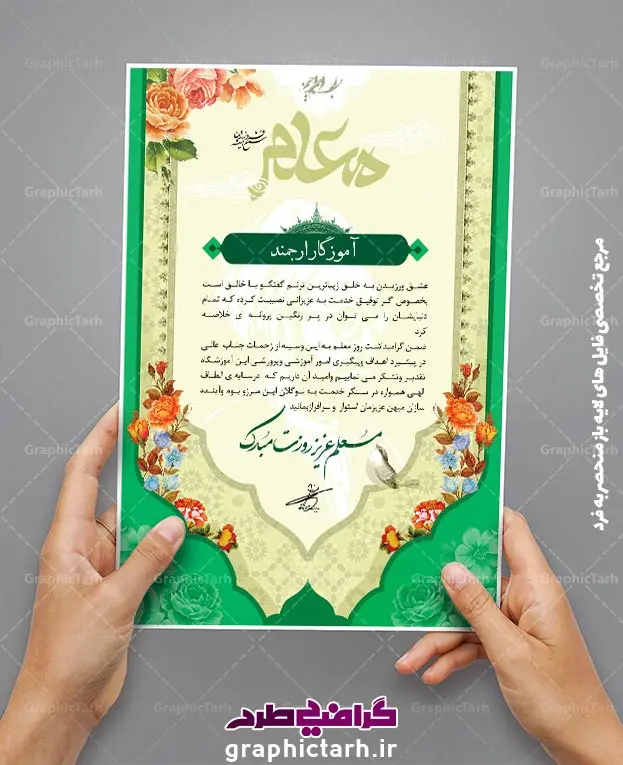 معلم
آموزگار ارجمند
عشق ورزیدن به خلق زیباترین ترنم گفتگو با خالق است
بخصوص گر توفیق خدمت به عزیزانی نصیبت کرده که تمام
دنیایشان را می توان در پر رنگین پروانه ای خلاصه
کرد
ضمن گرامیداشت روز معلم به این وسیله از زحمات جناب عالی
در پیشبرد اهداف وپیگیری امور آموزشی وپرورشی این آموزشگاه
تقدیر وتشکر می نماییم وامید آن داریم که درسایه ی الطاف
الهی همواره در سنگر خدمت به نوگلان این مرزو بوم وآینده
سازان میهن عزیزمان استوار و سرافرازبمانید
معلم عزیز روزت مبارک
مرجع تخصصی فایل های لایه باز منحصر به فرد
گرافیک طرح
graphictarh.ir
GraphicTarh